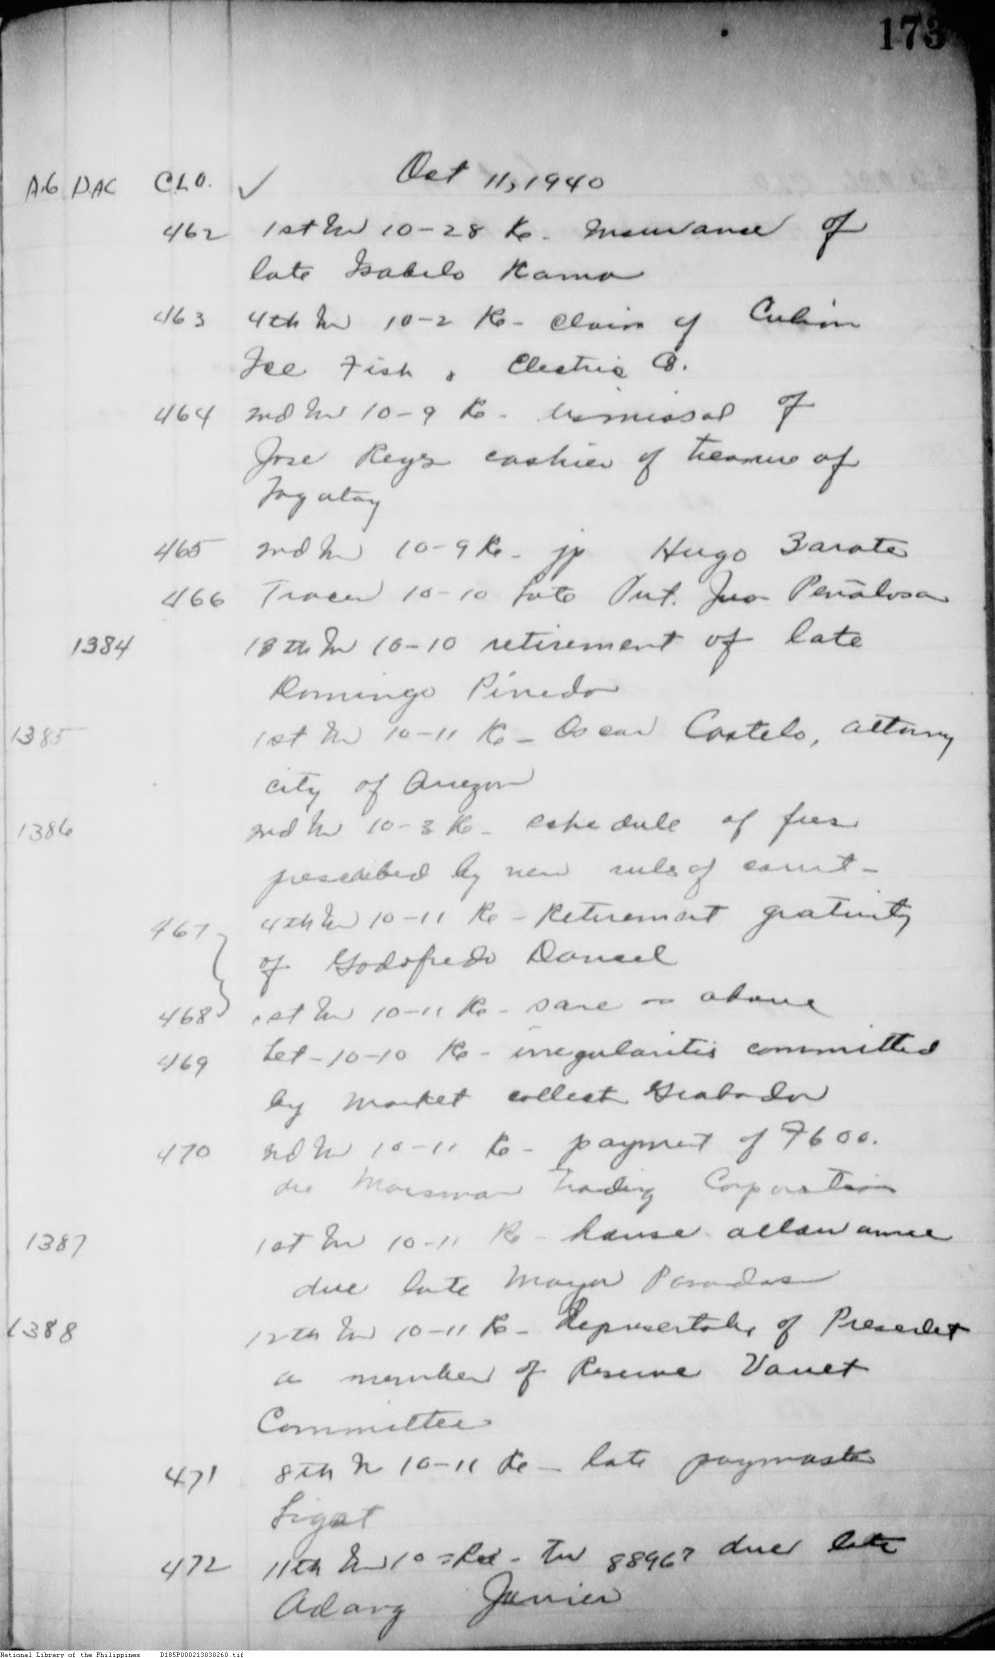 173
AG DAC CLO. ✓ Oct 11, 1940
462 1st In 10-28 Re- Insurance of
late Isabelo Rama
463 4th In 10-2 Re- Claim of Culion
Ice Fish & Electric Co.
464 2nd In 10-9 Re- dismissal of
Jose Reyes cashier of treasurer of
Tagatay
465 2nd In 10-9 Re- jp Hugo Zarate
466 Tracer 10-10 late Juo Peñalosa
1384 18th In 10-10 retirement of late
Domingo Pinedo
1385 1st In 10-11 Re- Oscar Castelo, attorny
city of Quezon
1386 2nd In 10-3 Re- schedule of fees
prescribed by new rules of court-
467 4th In 10-11 Re- Retirement gratuity
of Godofredo
468 1st In 10-11 Re- same as above
469 Let-10-10 Re- irregularities committed
by market collector Grabador
470 2nd In 10-11 Re- payment of ₱600.
due Marsman Trading Corporation
1387 1st In 10-11 Re- house allowance
due late Mayor Posadas
1388 12th In 10-11 Re- Representative of President
a member of Reserve
Committee
471 8th In 10-11 Re- late paymaster
Ligot
472 11th In 10- Re- TW 88967 due late
Adang Javier
National Library of the Philippines D185P000213838260.tif